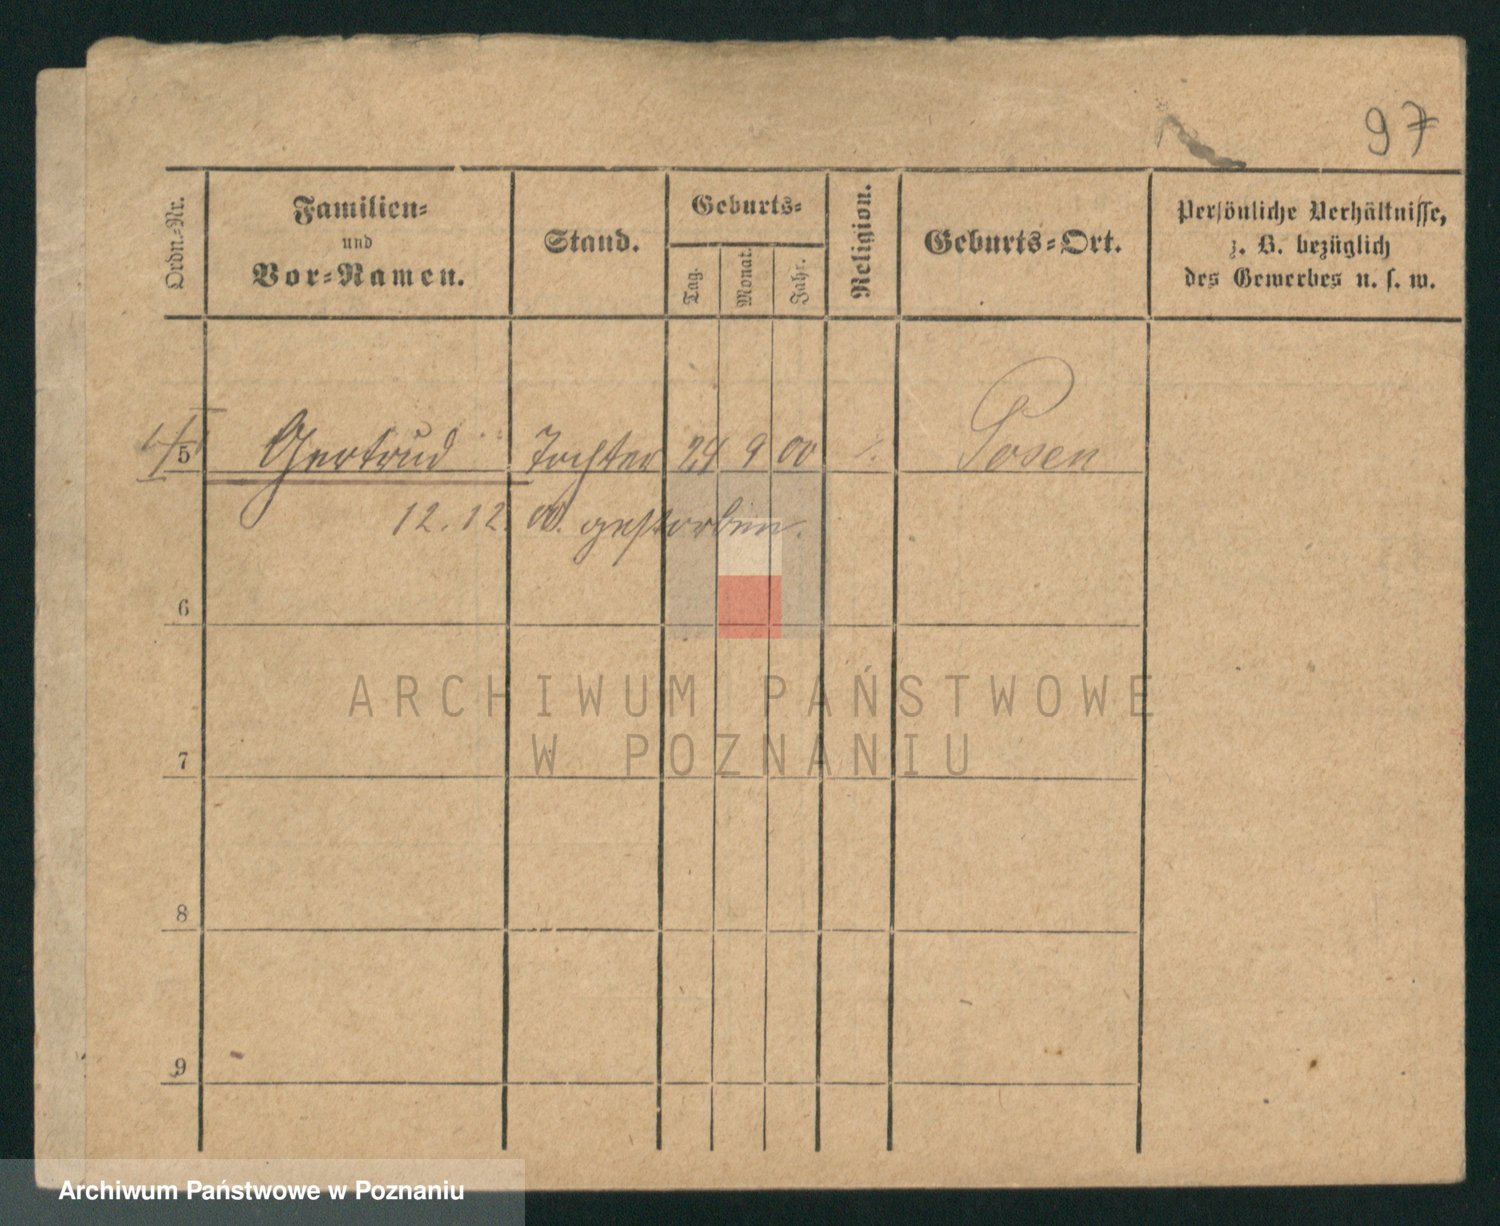 97
Ordn.-Nr. Familien- und Vor-Namen. Stand. Geburts- Tag. Monat. Jahr. Religion. Geburts-Ort. Persönliche Verhältnisse, z. B. bezüglich des Gewerbes u. s. w.
5 Gertrud Tochter 24 9 00 ./. Posen
12.12. 00. gestorben.
6
ARCHIWUM PAŃSTWOWE
W POZNANIU
7
8
9
Archiwum Państwowe w Poznaniu